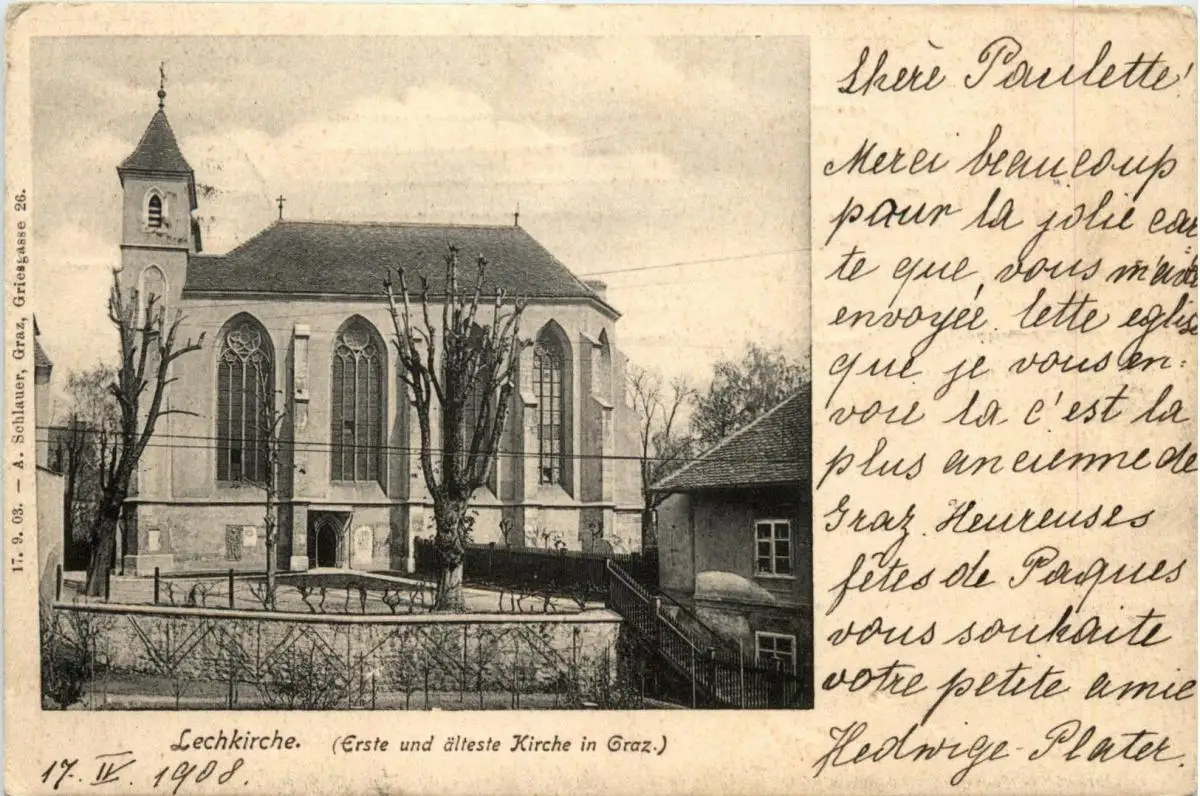 17. 9. 03. — A. Schlauer, Graz, Griesgasse 26.
Chère Paulette!
Merci beaucoup
pour la jolie car
te que vous m'avez
envoyée. Cette eglise
que je vous en-
voie la c'est la
plus ancienne de
Graz. Heureuses
fêtes de Paques
vous souhaite
votre petite amie
Hedwige-Plater.
Lechkirche. (Erste und älteste Kirche in Graz.)
17. IV. 1908.